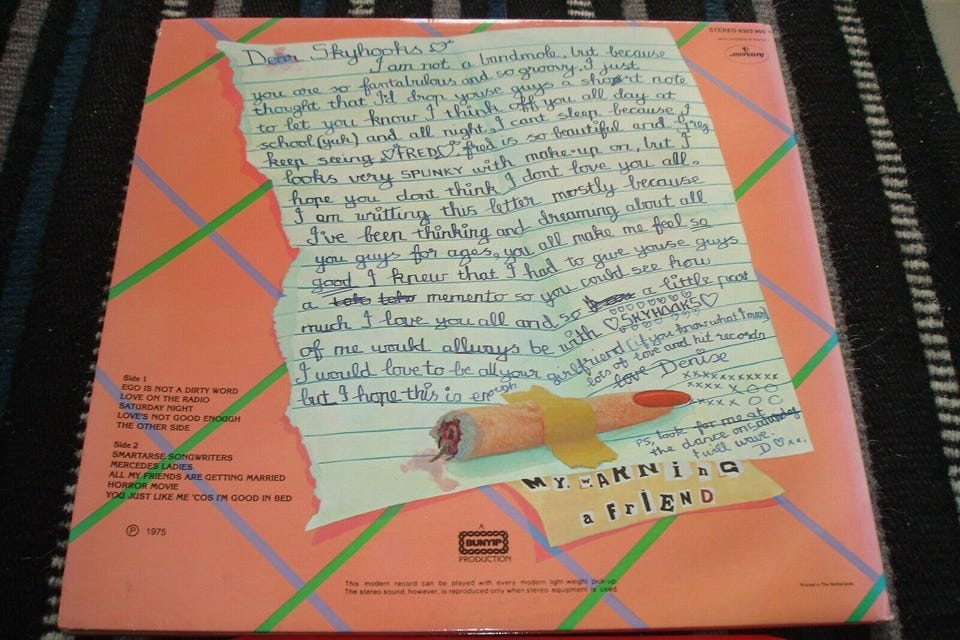 STEREO 6302 900
mercury
Dear Skyhooks
I am not a bandmole, but because
you are so fantabulous and so groovy, I just
thought that I'd drop youse guys a short note
to let you know I think off you all day at
school (yuk) and all night, I cant sleep because I
keep seeing FRED, fred is so beautiful and greg
looks very SPUNKY with make-up on, but I
hope you dont think I dont love you all.
I am writting this letter mostly because
I've been thinking and dreaming about all
you guys for ages, you all make me feel so
good I knew that I had to give youse guys
a memento so you could see how
much I love you all and so a little part
of me would allways be with ♡SKYHOOKS♡
I would love to be all your girlfriend (if you know what I mean)
but I hope this is enough
lots of love and hit records
love Denise
xxxxxxxxxxx
xxxx XOO
xxxx OO
PS, look for me at
the dance on saturday
I will wave.
D ♡ xx.
MY WARNiNG
a FRIEND
Side 1
EGO IS NOT A DIRTY WORD
LOVE ON THE RADIO
SATURDAY NIGHT
LOVE'S NOT GOOD ENOUGH
THE OTHER SIDE
Side 2
SMARTARSE SONGWRITERS
MERCEDES LADIES
ALL MY FRIENDS ARE GETTING MARRIED
HORROR MOVIE
YOU JUST LIKE ME 'COS I'M GOOD IN BED
Ⓟ 1975
A
BUNYIP
PRODUCTION
This modern record can be played with every modern light-weight pick-up.
The stereo sound, however, is reproduced only when stereo equipment is used.
Printed in The Netherlands